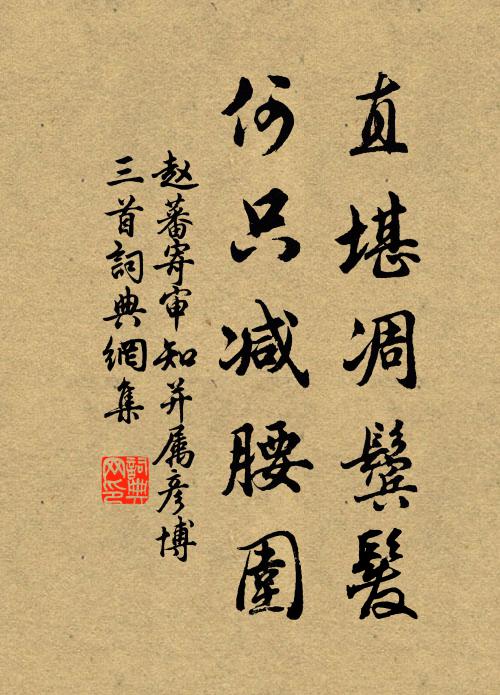 直堪凋鬢髮
何只减腰圍
赵蕃寄审知并属彦博
三首詞典網集
詞典网印